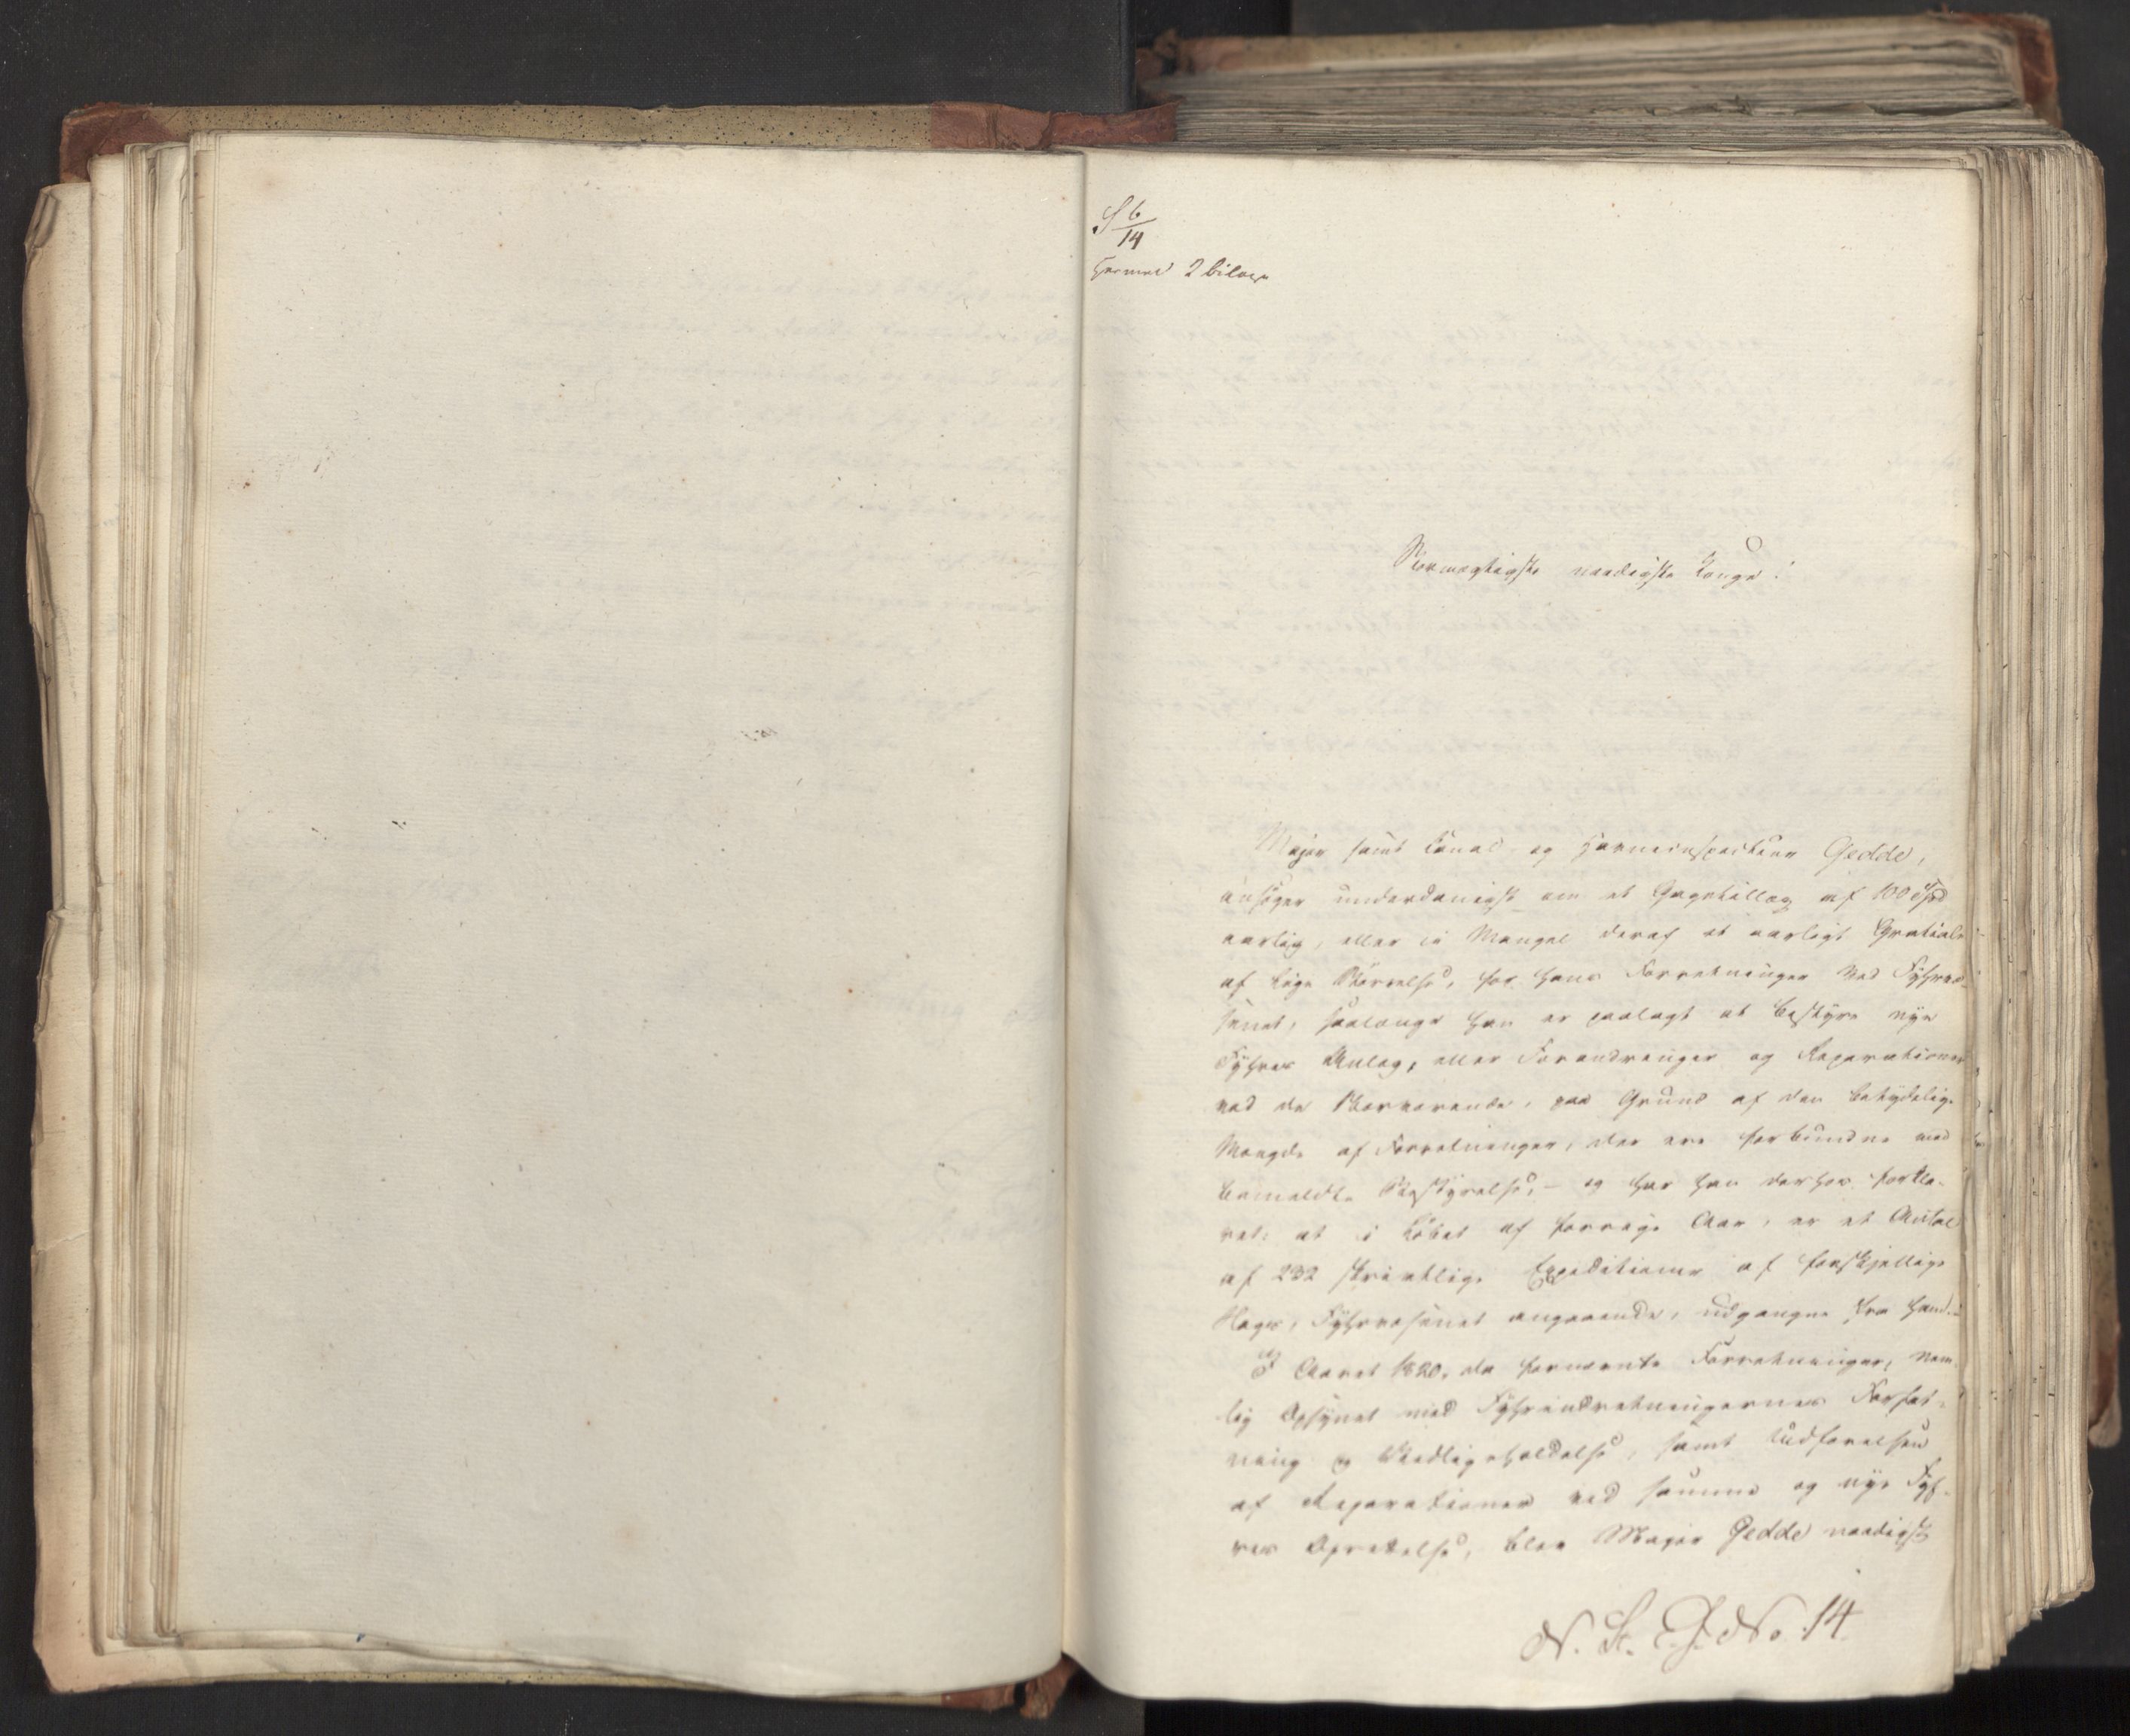 S 6/14
Hermed 2 bilage
Stormægtigste naadigste Konge!
Major samt Canal- og Havneinspecteur Gedde,
ansøger underdanigst om et Gagetillæg af 100 Spd
aarlig, eller i Mangel deraf et aarligt Gratiale
af lige Størrelse, for hans Forretninger ved Fyhrvæ-
senet, saalænge han er paalagt at bestyre nye
Fyhres Anlæg, eller Forandringer og Reparationer
ved de Nærværende, paa Grund af den betydelige
Mængde af Forretninger, der ere forbundne med
bemeldte Bestyrelse, - og har han derhos forkla-
ret: at i Løbet af forrige Aar, er et Antal
af 232 skrivtlige Expeditioner af forskjellige
Slags, Fyhrvæsenet angaaende, udgangne fra ham.
I Aaret 1820, da formeente Forretninger, nem-
lig Opsynet med Fyhrindretningernes Forfat-
ning og Vedligeholdelse, samt Udførelsen
af Reparationer ved samme og nye Fyh-
res Oprettelse, blev Major Gedde naadigst
N. St. C. J. No. 14